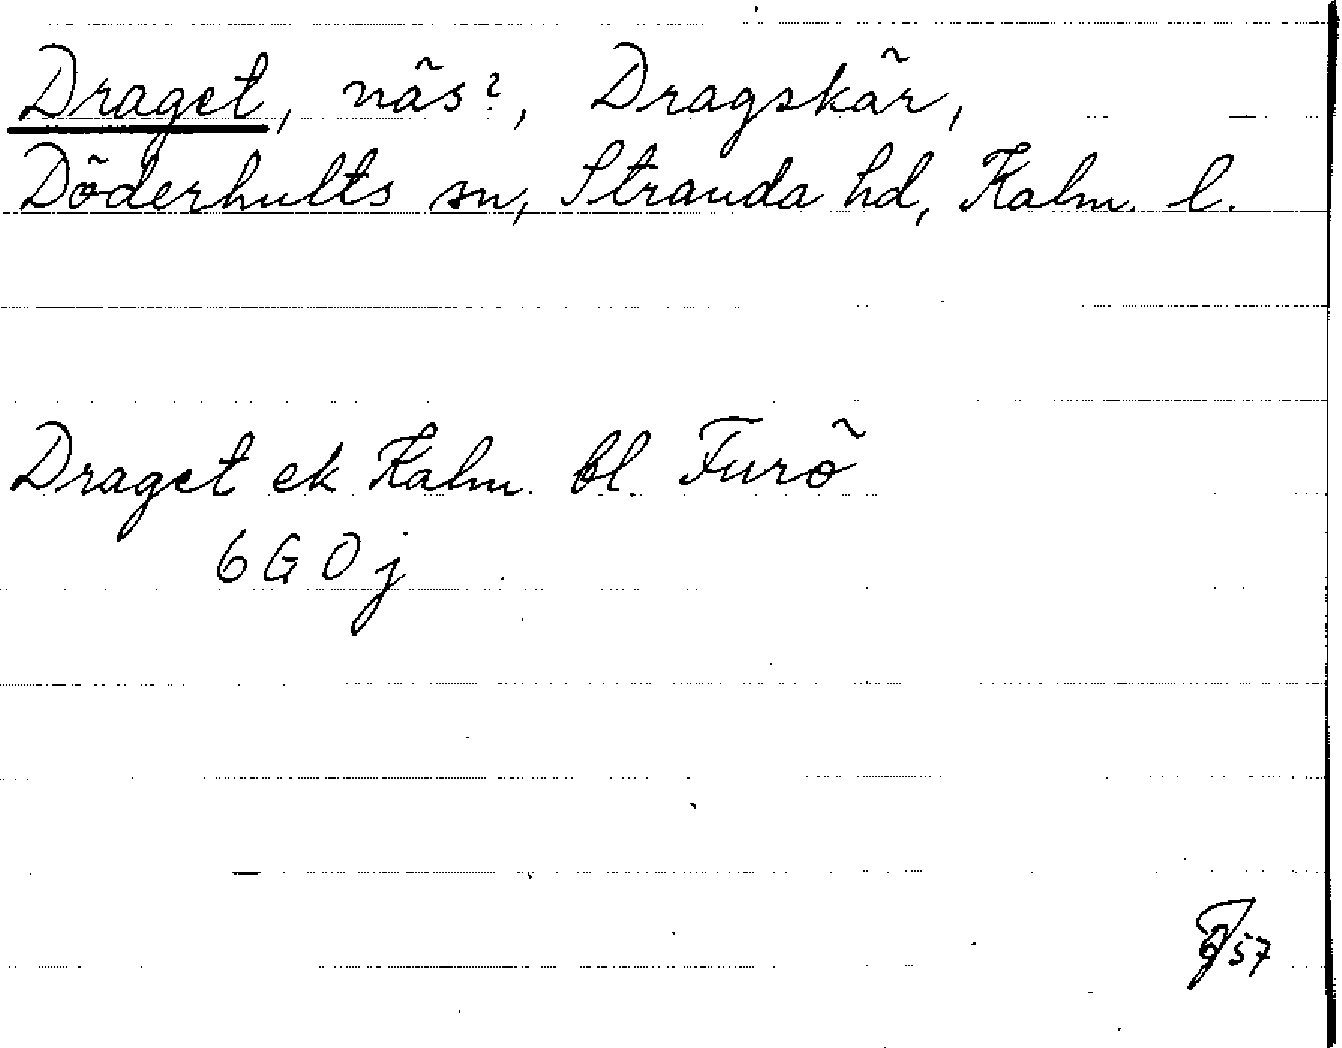 Draget, näs?, Dragskär,
Döderhults sn, Stranda hd, Kalm. l.
Draget ek Kalm. bl. Furö
6 G 0 j
57